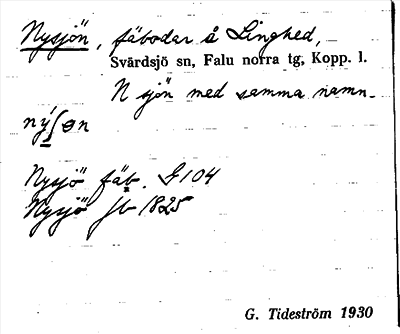 Nysjön, fäbodar å Linghed,
Svärdsjö sn, Falu norra tg, Kopp. l.
N sjön med samma namn.
ny´ʃɵn
Nysjö fäb. G104
Nysjö Jb 1825
G. Tideström 1930